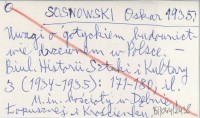 SOSNOWSKI Oskar 1935.
Uwagi o gotyckiem budownict-
wie drzewnem w Polsce. -
Biul. Historii Sztuki i Kultury
3 (1934-1935): 171-180, il.
M.in. kościoły w Dębnie,
Łopusznej i Krościenku.